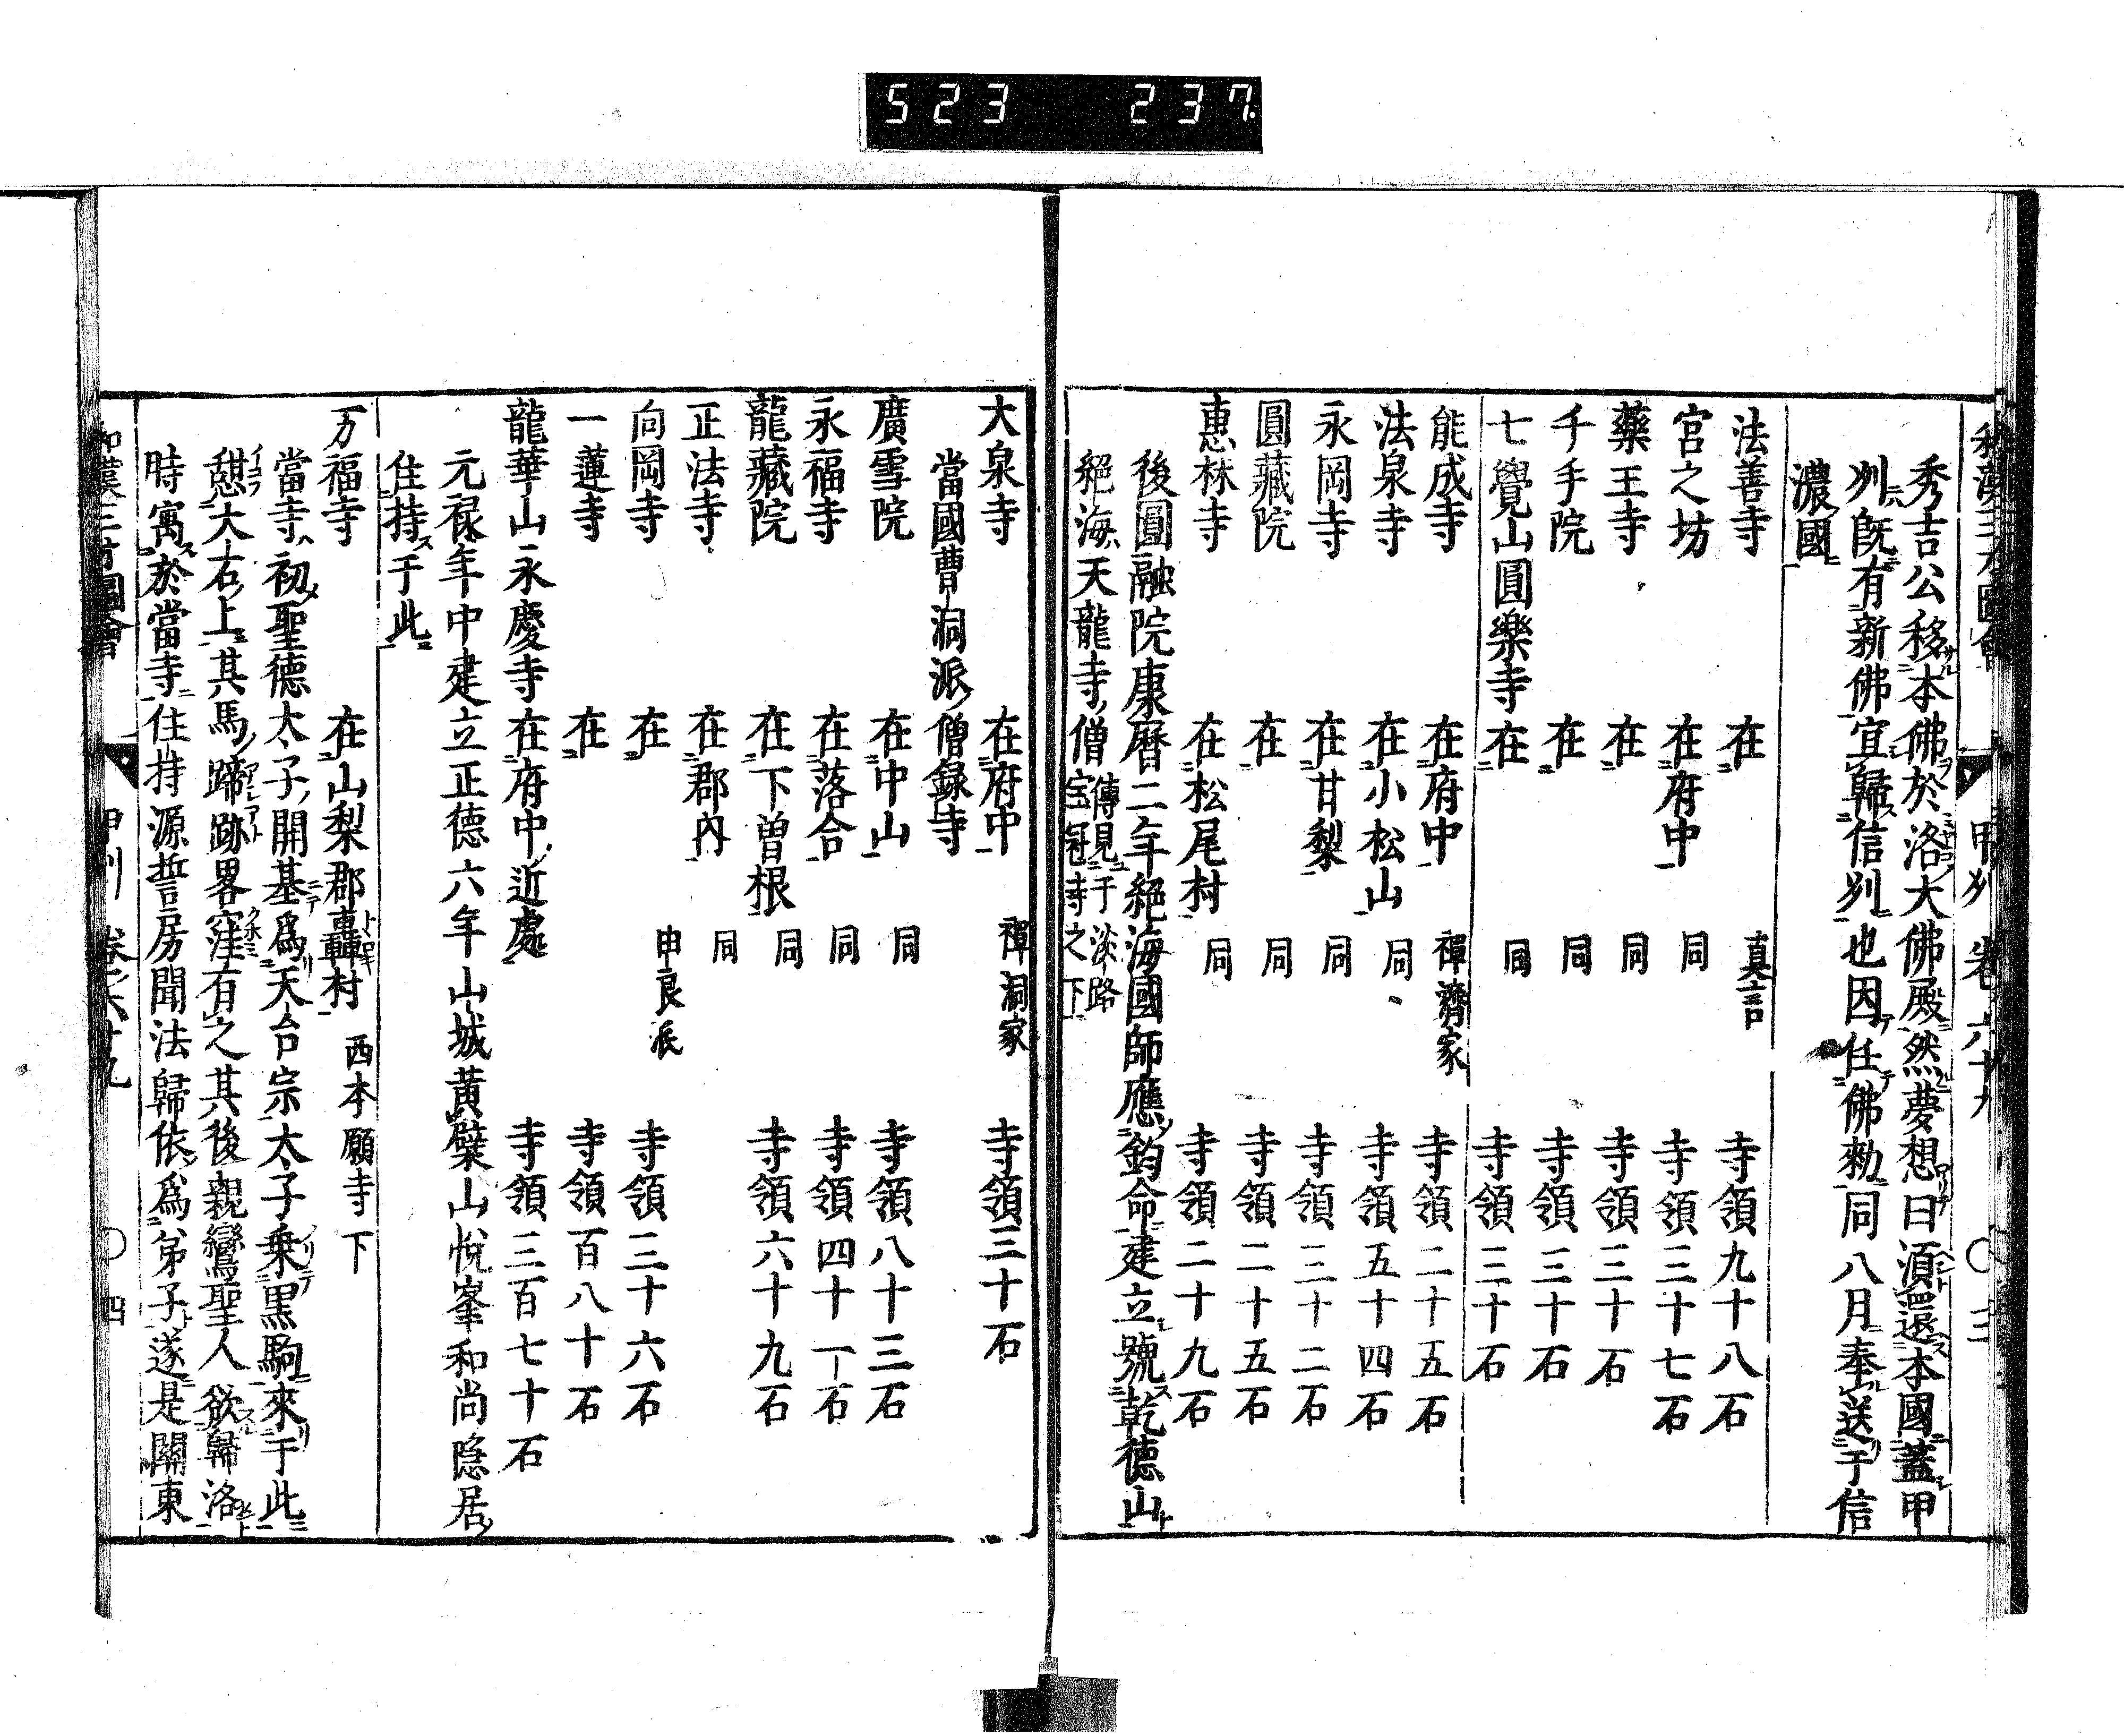 523 237.
和漢三才圖會 甲州 卷六十九 〇三
秀吉公移本佛於洛大佛殿然夢想曰須還本國蓋甲
州既有新佛宜歸信州也因任佛勅同八月奉送于信
濃國
法善寺 在 真言 寺領九十八石
宮之坊 在府中 同 寺領三十七石
藥王寺 在 同 寺領三十石
千手院 在 同 寺領三十石
七覺山圓樂寺 在 同 寺領三十石
能成寺 在府中 禪濟家 寺領二十五石
法泉寺 在小松山 同 寺領五十四石
永岡寺 在甘梨 同 寺領三十二石
圓藏院 在 同 寺領二十五石
惠林寺 在松尾村 同 寺領二十九石
後圓融院康曆二年絕海國師應鈞命建立號乾德山
絕海天龍寺僧傳見于淡路宝冠寺之下
大泉寺 在府中 禪洞家 寺領三十石
當國曹洞派僧録寺
廣雪院 在中山 同 寺領八十三石
永福寺 在落合 同 寺領四十一石
龍藏院 在下曽根 同 寺領六十九石
正法寺 在郡內 同
向岡寺 在 申良派 寺領三十六石
一蓮寺 在 寺領百八十石
龍華山永慶寺 在府中近處 寺領三百七十石
元禄年中建立正德六年山城黄檗山悅峯和尚隐居
住持于此
万福寺 在山梨郡轟村 西本願寺下
當寺初聖德太子開基爲天台宗太子乗黒駒來于此
憩大石上其馬蹄跡畧窪有之其後親鸞聖人欲歸洛
時寓於當寺住持源誓房聞法歸依爲弟子遂是關東
和漢三才圖會 甲州 卷六十九 〇四